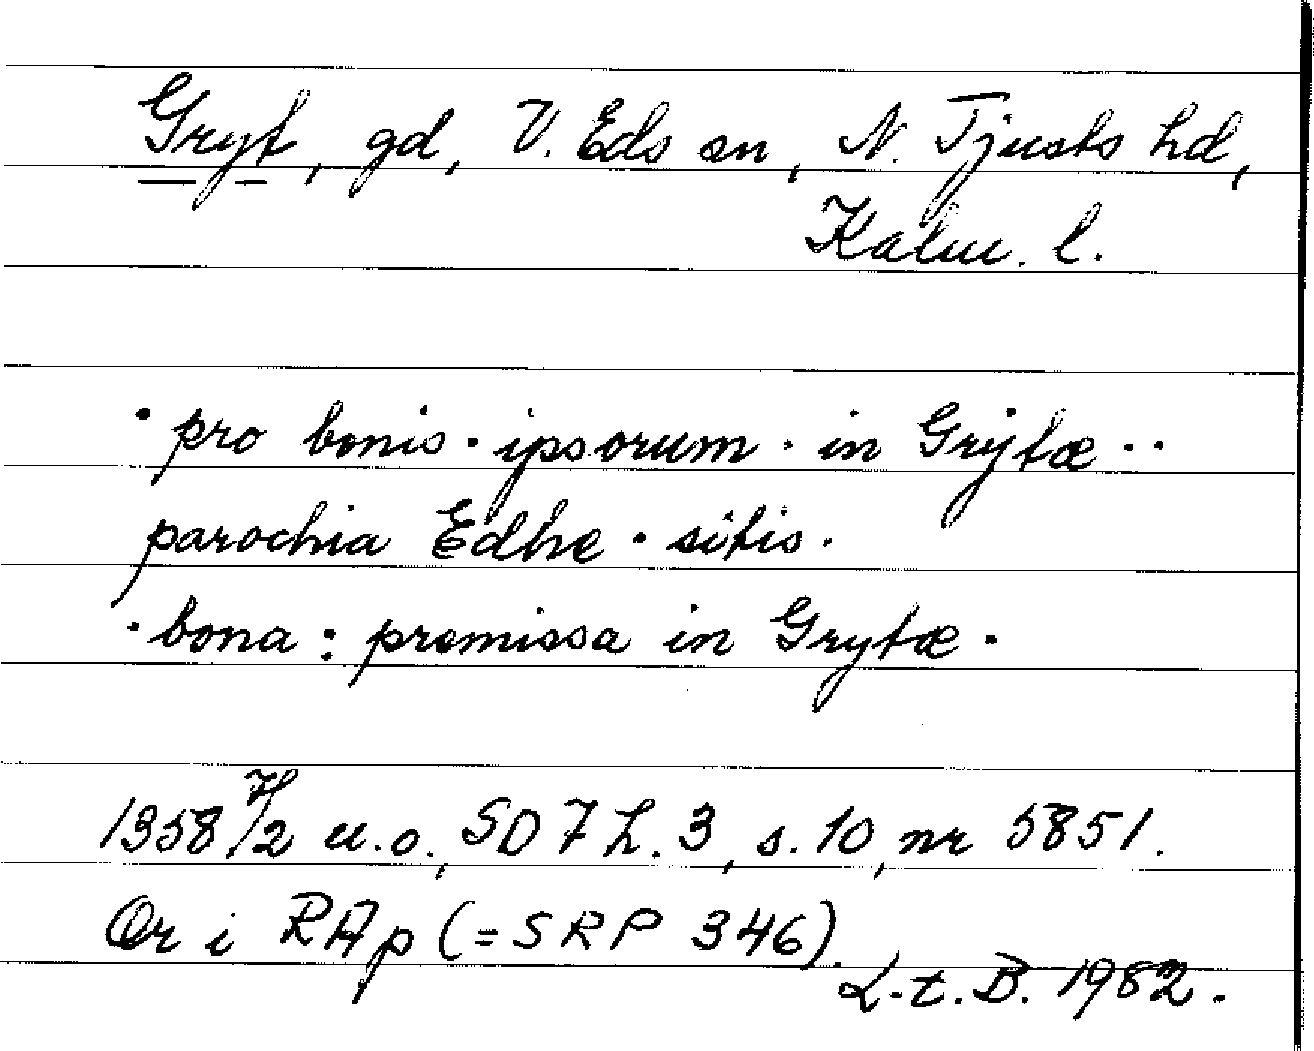 Gryt, gd, V. Eds sn, N. Tjusts hd,
Kalm. l.
· pro bonis · ipsorum · in Grijtæ ··
parochia Edhe · sitis.
· bona : premissa in Grytæ ·
1358 7/2 u.o., SD 7 h. 3, s. 10, nr 5851.
Or i RAp (= SRP 346).
L.t.B. 1982.